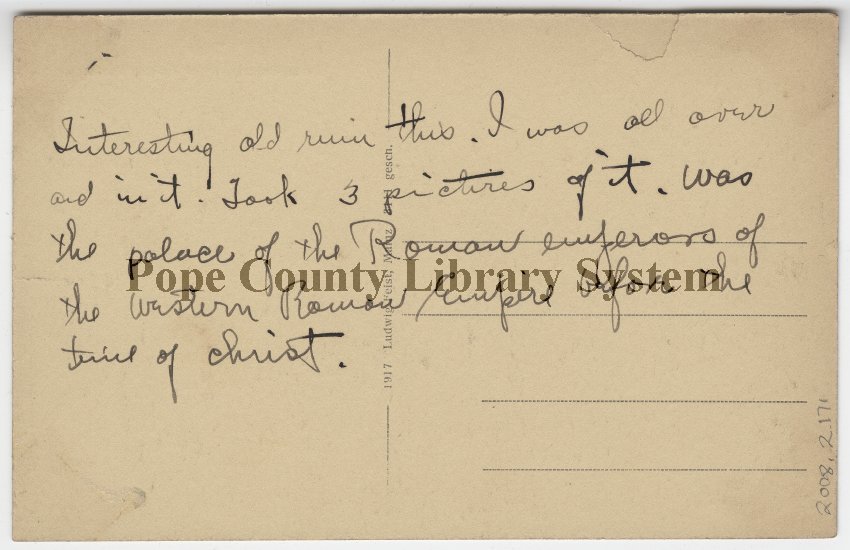 Interesting old ruin this. I was all over
and in it. Took 3 pictures of it. Was
the palace of the Roman emperors of
the western Roman Empire before the
time of christ.
Pope County Library System
1917 Ludwig Feist, Mainz gesch.
2008.2.171